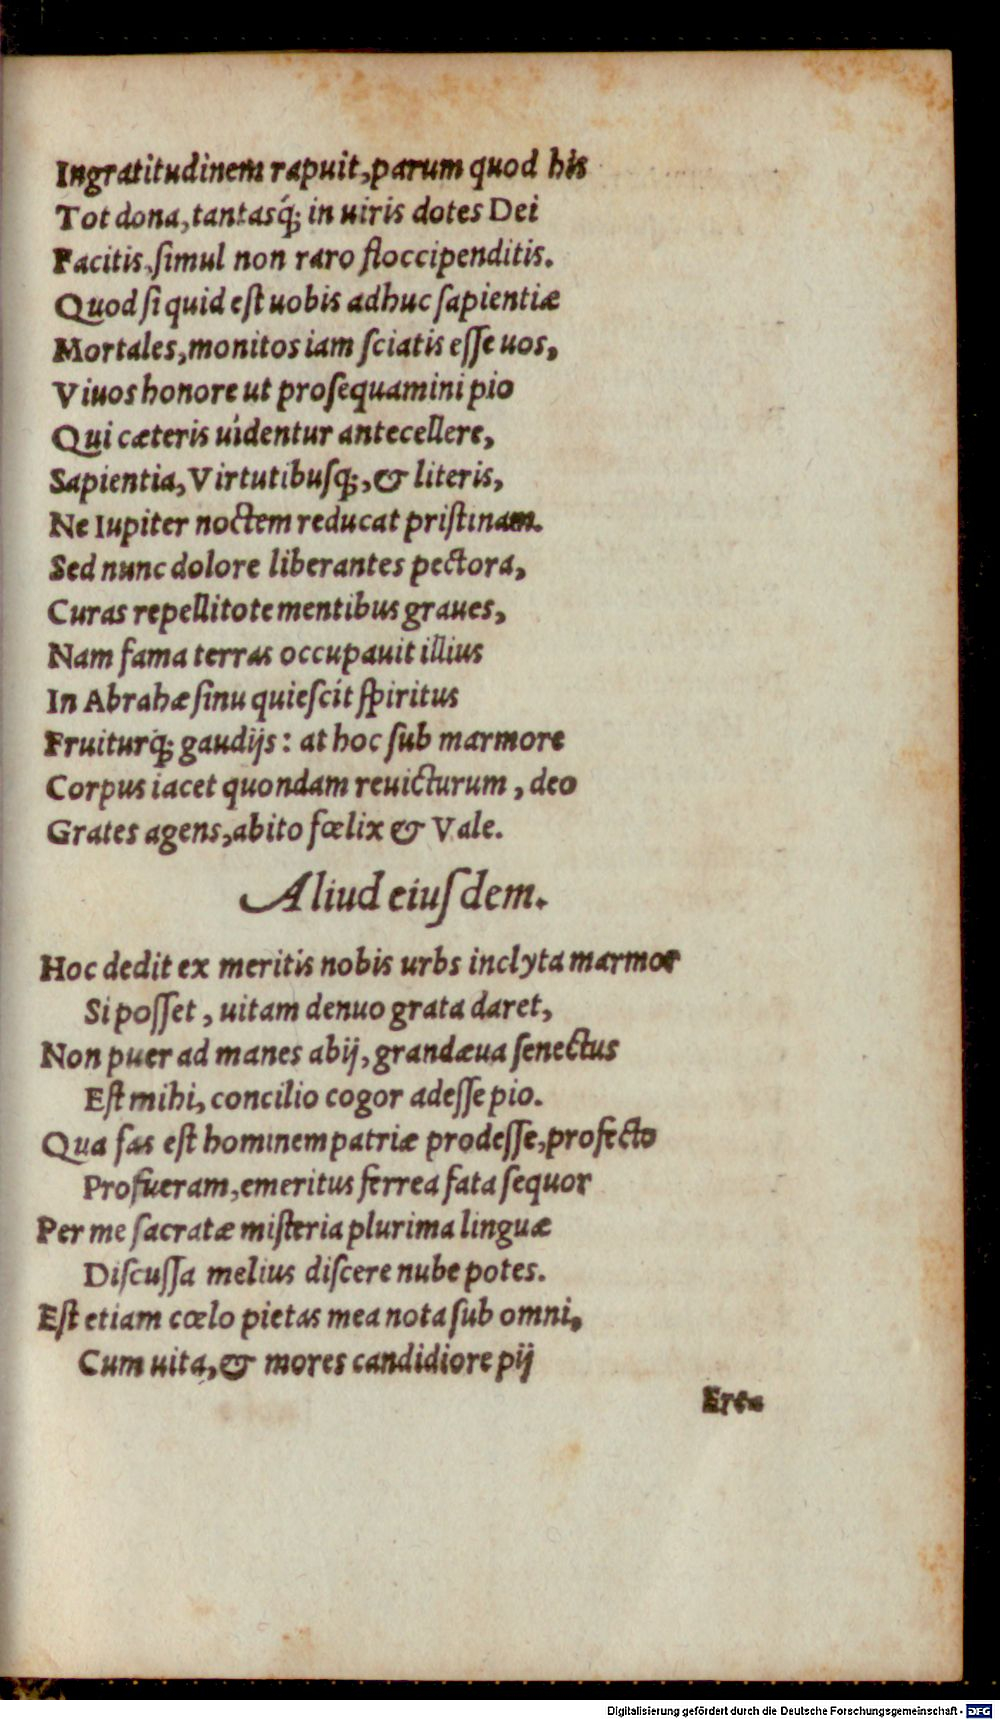 Ingratitudinem rapuit, parum quod his
Tot dona, tantasq́; in uiris dotes Dei
Facitis, ſimul non raro floccipenditis.
Quod ſi quid eſt uobis adhuc ſapientiæ
Mortales, monitos iam ſciatis eſſe uos,
Viuos honore ut proſequamini pio
Qui cæteris uidentur antecellere,
Sapientia, Virtutibuſq;, & literis,
Ne Iupiter noctem reducat priſtinam.
Sed nunc dolore liberantes pectora,
Curas repellitote mentibus graues,
Nam fama terras occupauit illius
In Abrahæ ſinu quieſcit ſpiritus
Fruiturq́; gaudijs: at hoc ſub marmore
Corpus iacet quondam reuicturum, deo
Grates agens, abito fœlix & Vale.
Aliud eiuſdem.
Hoc dedit ex meritis nobis urbs inclyta marmor
Si poſſet, uitam denuo grata daret,
Non puer ad manes abij, grandæua ſenectus
Eſt mihi, concilio cogor adeſſe pio.
Qua fas eſt hominem patriæ prodeſſe, profecto
Profueram, emeritus ferrea fata ſequor
Per me ſacratæ miſteria plurima linguæ
Diſcuſſa melius diſcere nube potes.
Eſt etiam cœlo pietas mea nota ſub omni,
Cum uita, & mores candidiore pij
Digitalisierung gefördert durch die Deutsche Forschungsgemeinschaft - DFG